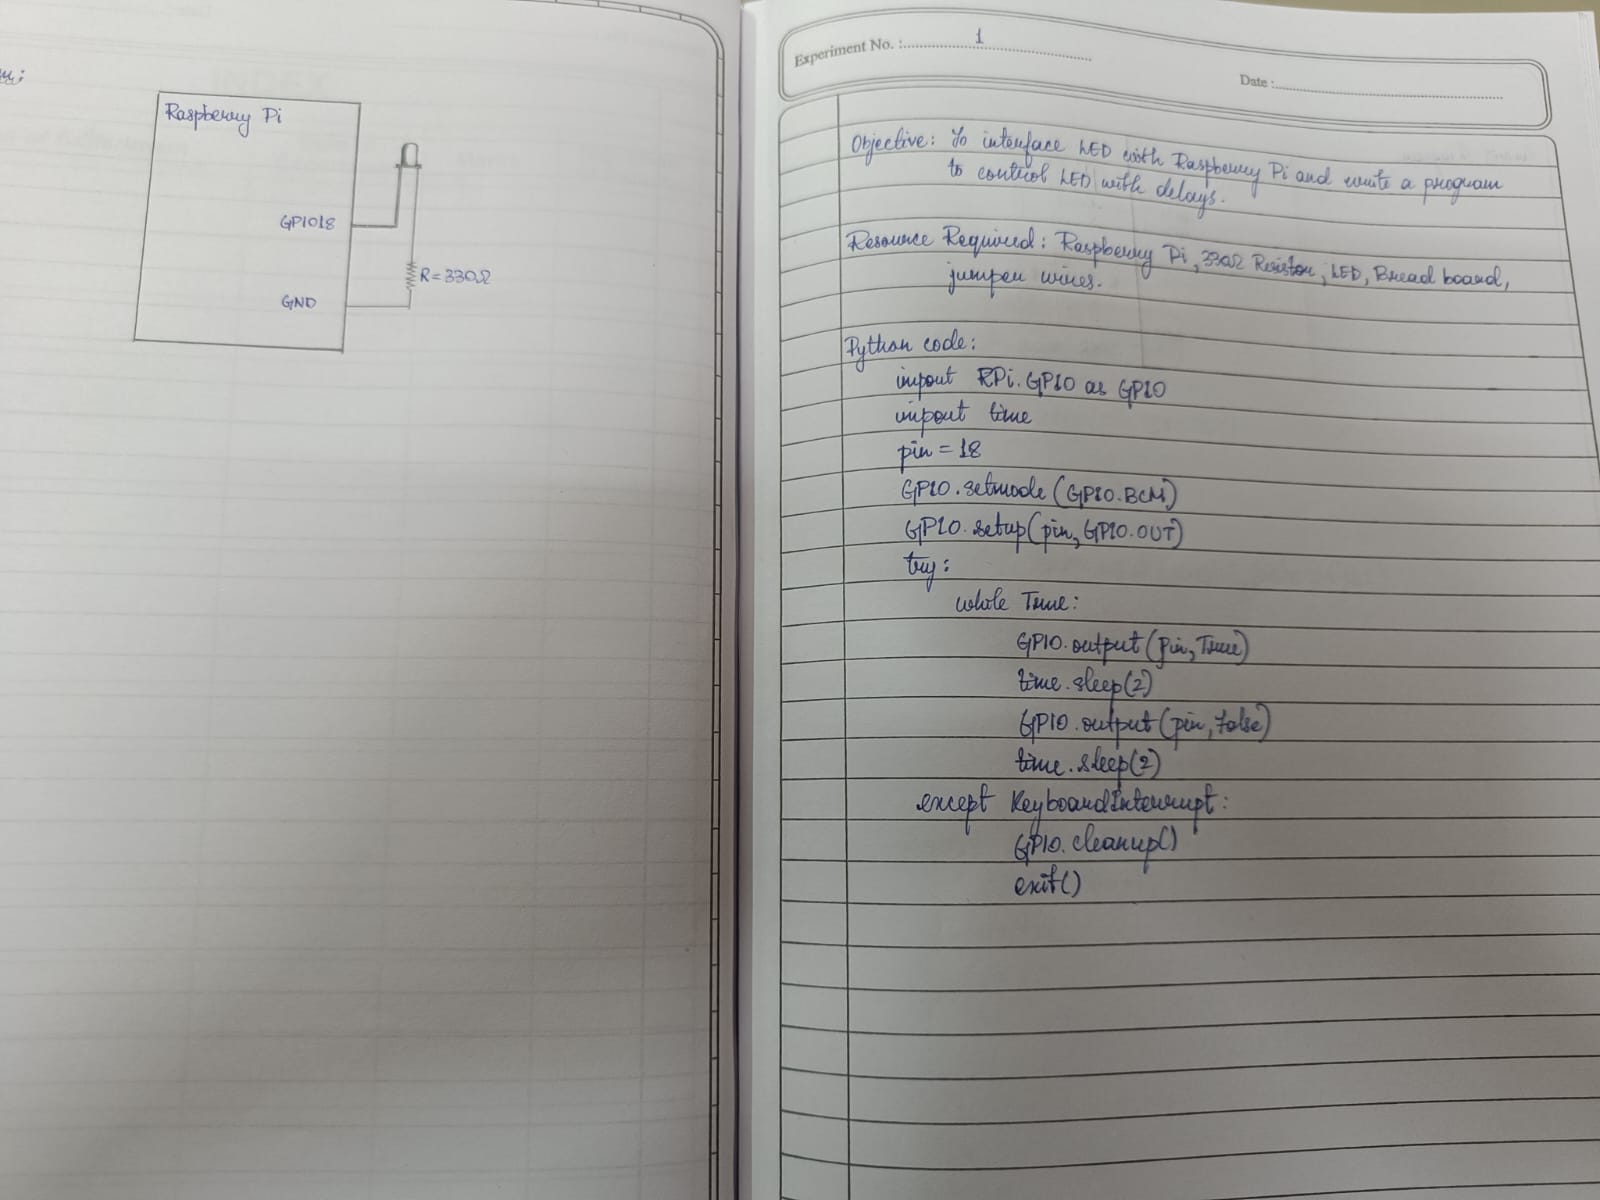 Raspberry Pi
GPIO18
R=330Ω
GND
Experiment No. : 1
Date :
Objective: To interface LED with Raspberry Pi and write a program
to control LED with delays.
Resource Required: Raspberry Pi, 330Ω Resistor, LED, Bread board,
jumper wires.
Python code:
import RPi.GPIO as GPIO
import time
pin = 18
GPIO.setmode(GPIO.BCM)
GPIO.setup(pin, GPIO.OUT)
try:
while True:
GPIO.output(pin, True)
time.sleep(2)
GPIO.output(pin, False)
time.sleep(2)
except KeyboardInterrupt:
GPIO.cleanup()
exit()